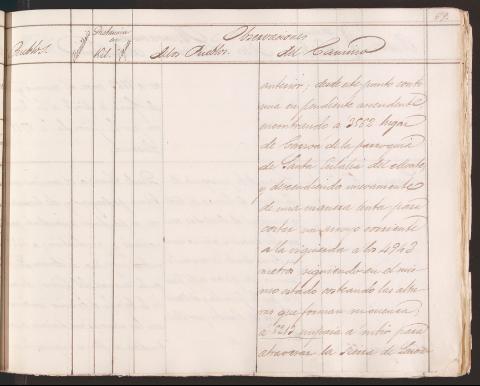 Observaciones
Pueblos.
Distancia
en
Kil.
de los Pueblos.
del Camino
anterior, desde este punto conti
nua en pendiente ascendente
encontrando a 3562 lugar
de de la parroquia
de Santa Eulalia del
y descendiendo nuevamente
de una manera lenta para
cortar un arroyo corriente
a la izquierda a los 4943
metros siguiendo en el mis-
mo estado costeando las altu-
ras que forman
a 5213 empieza a subir para
atravesar la Sierra de